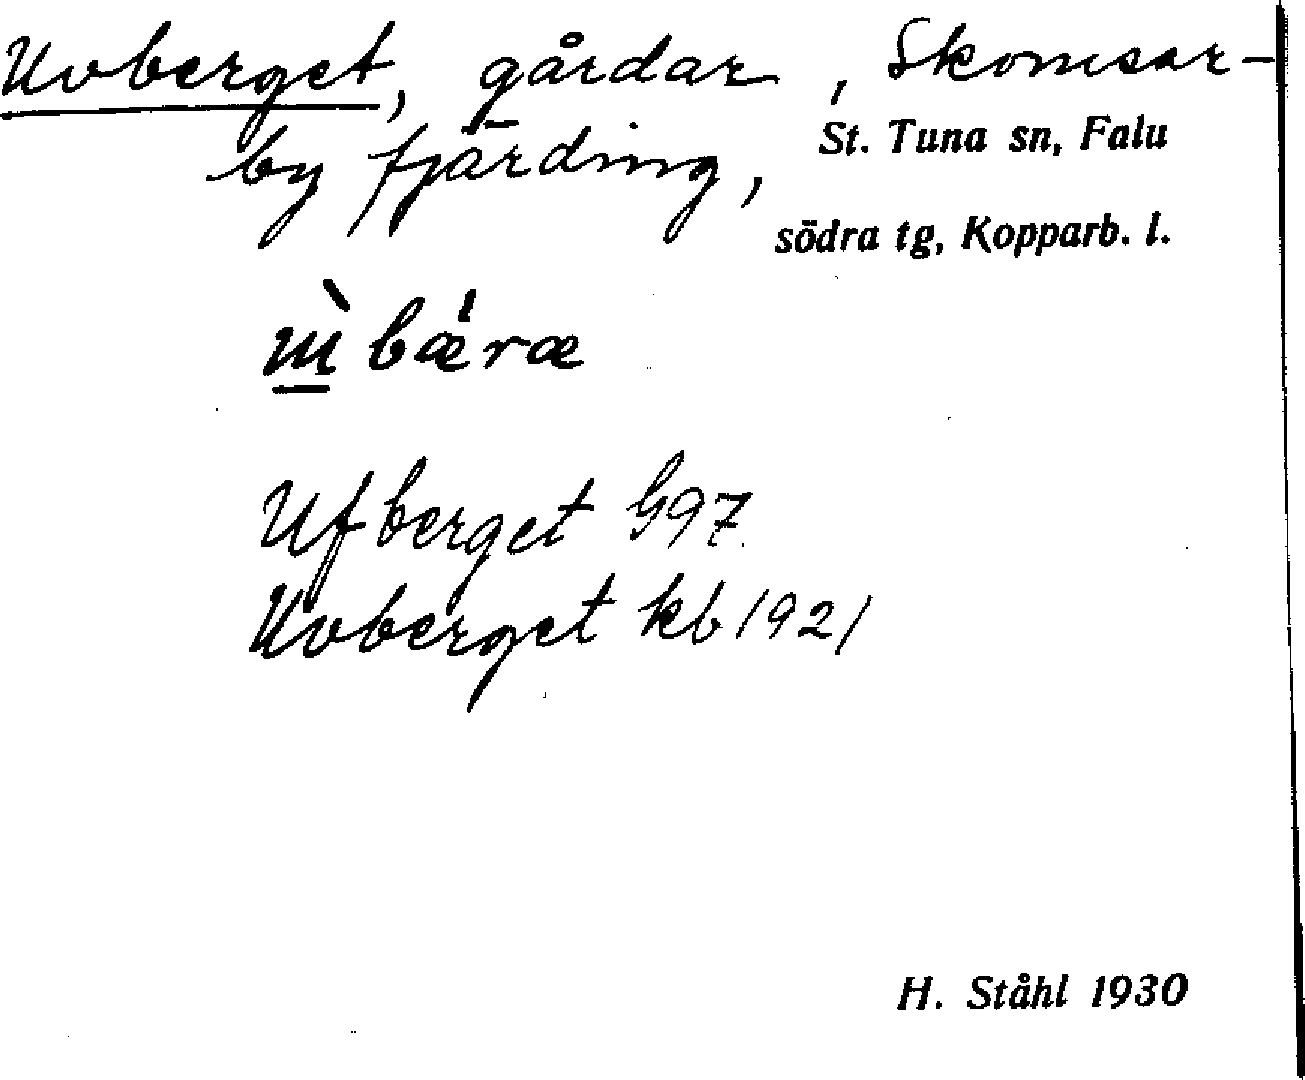 Uvberget, gårdar, Skomsar-
by fjärding, St. Tuna sn, Falu
södra tg, Kopparb. l.
bǽræ
Ufberget G97
Uvberget kb 1921
H. Ståhl 1930